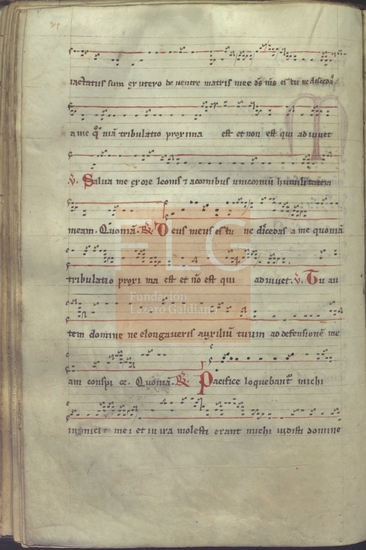 iactatus sum ex utero de ventre matris mee ds ms es tu ne discedas
a me qm̄ iam tribulatio proxima est et non est qui adiuvet
V. Salva me ex ore leonis 7 a cornibus unicorniū humilitatem
meam. Quoniā. R. Deus meus es tu ne discedas a me quoniā
FLG
tribulatio proxi ma est et nō est qui adiuvet. V. Tu au
Fundación
Lázaro Galdiano
tem domine ne elongaveris auxiliū tuum ad defensionē me
am conspi ce. Quoniā. R. Pacifice loquebant michi
inimici mei et in ira molesti erant michi vidisti domine